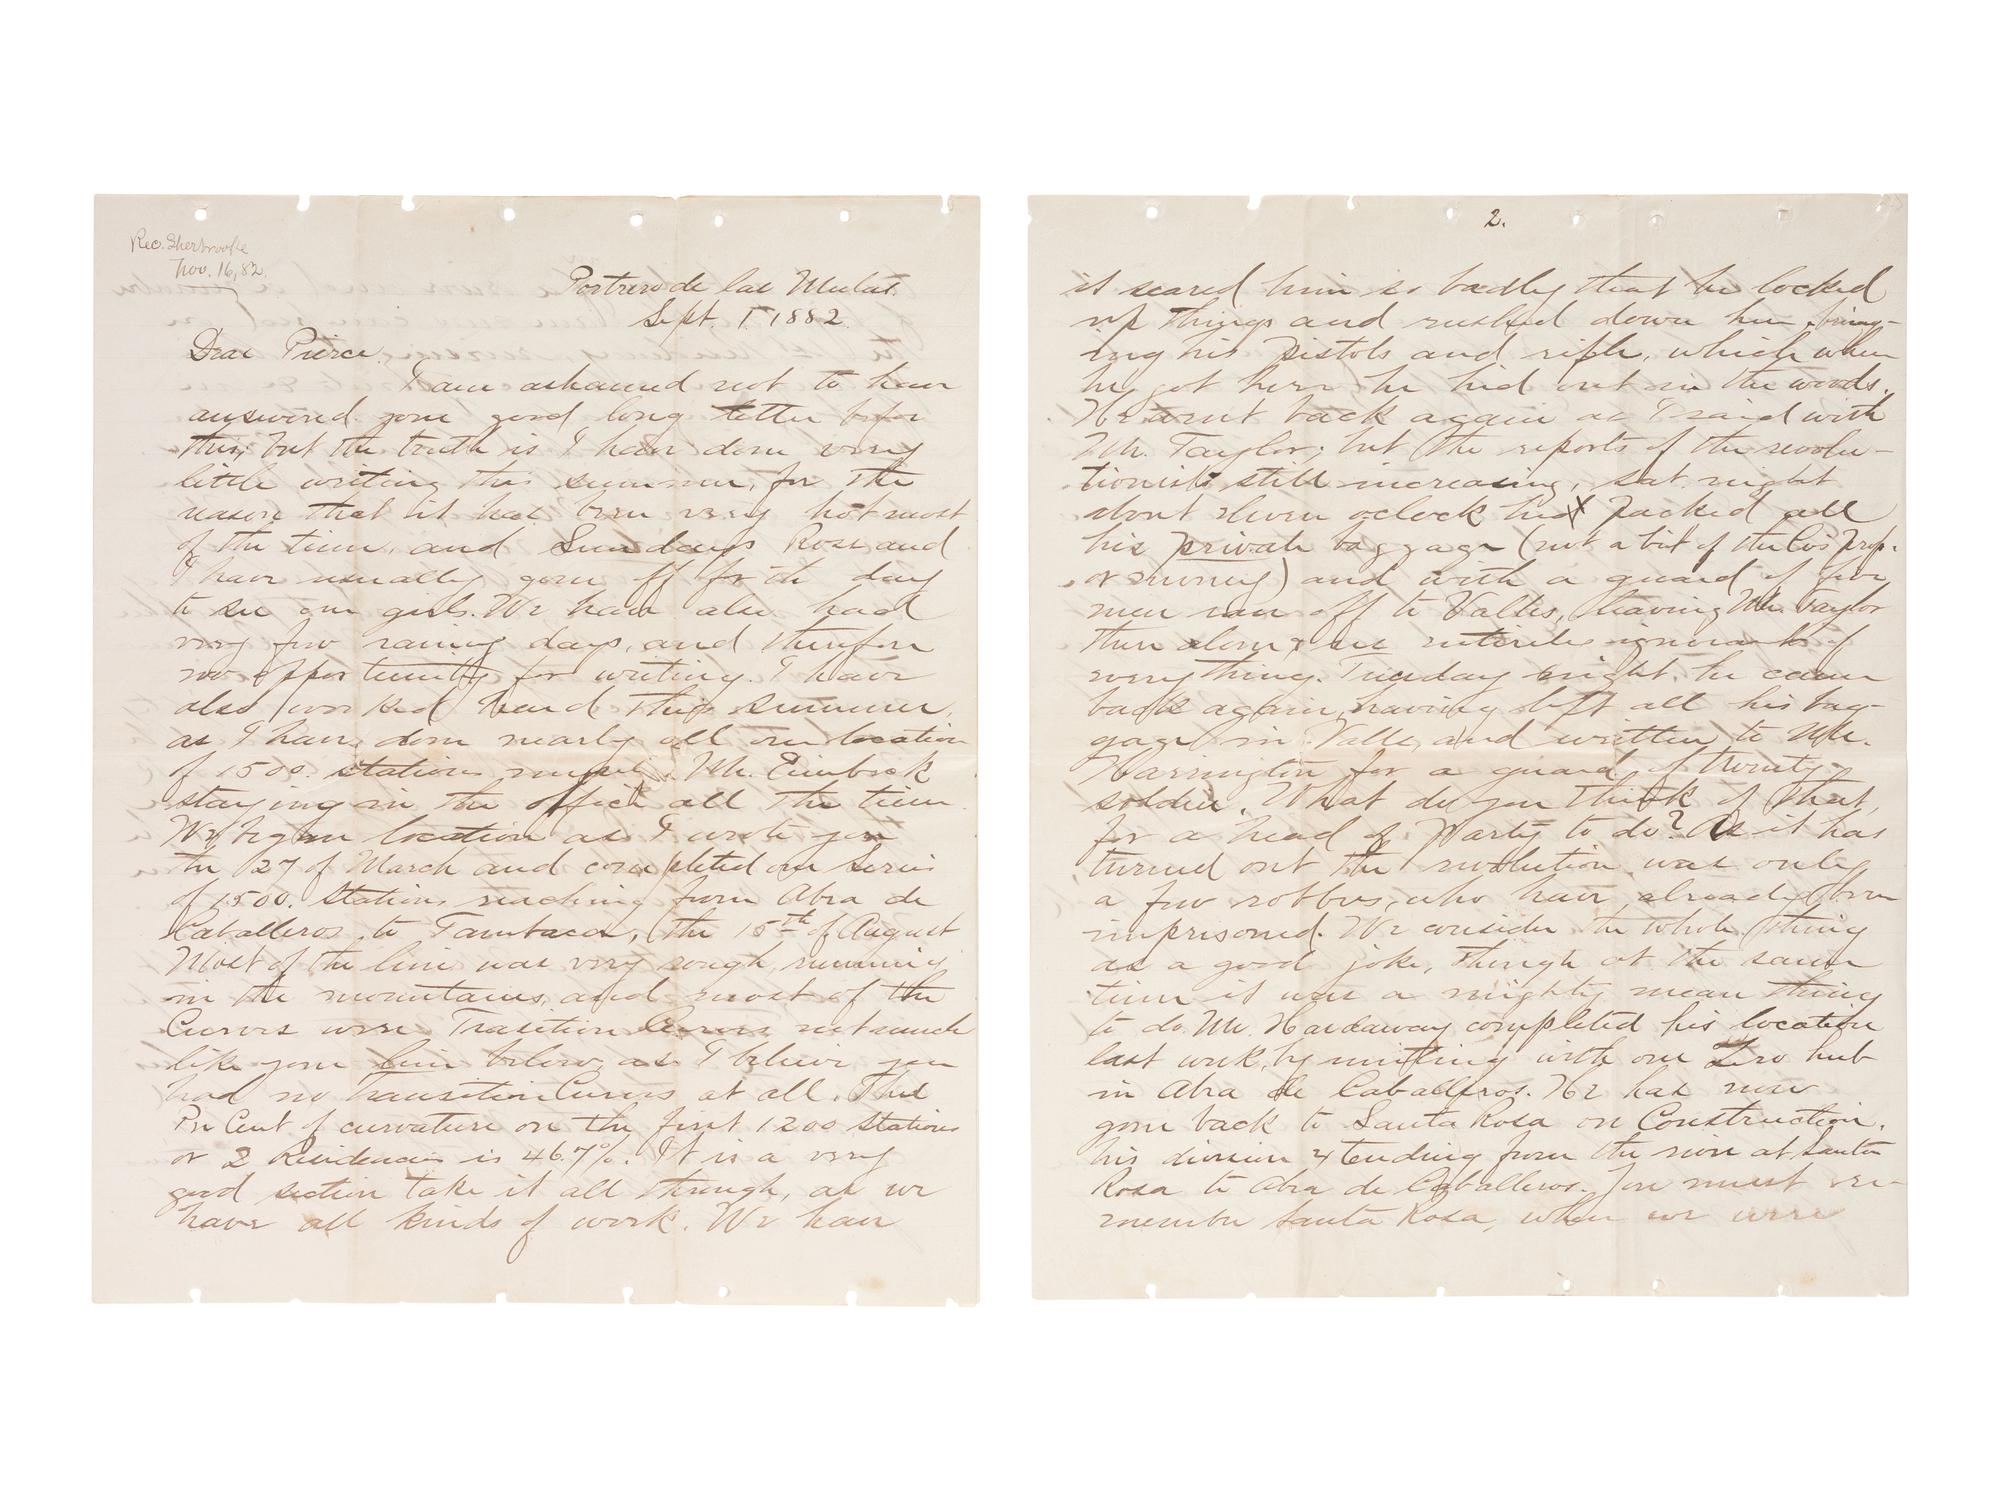 Rec. Sherbrooke
Nov. 16, 82.
Portrero de las Mulas.
Sept. 1 1882.
Dear Pierce.
I am ashamed not to have
answered your good long letter before
this; but the truth is I have done very
little writing this summer, for the
reason that it has been very hot most
of the time, and Sundays Rose and
I have usually gone off for the day
to see our girls. We have also had
very few raining days, and therefore
no opportunity for writing. I have
also worked hard this summer
as I have done nearly all our location
of 1500. stations myself, Mr. Eimbeck
staying in the office all the time.
We began location as I wrote you
the 27 of March and completed our Series
of 1500. Stations reaching from Abra de
Caballeros to Tambaca, the 15th of August
Most of the line was very rough, running
in the mountains, and most of the
Curves were Trasition Curves not much
like your line below, as I believe you
had no Transition Curves at all. The
Per Cent of curvature on the first 1200 Stations
or 2 Residencies is 46.7%. It is a very
good section take it all through, as we
have all kinds of work. We have
2.
it scared him so badly that he locked
up things and rushed down here, bring-
ing his pistols and rifle, which when
he got here he hid out in the woods.
He went back again as I said with
Mr. Taylor; but the reports of the revolu-
tionists still increasing, sat. night
about eleven oclock he packed all
his private baggage (not a bit of the Co's prop.
or money) and with a guard of five
men ran off to Valles, leaving Mr. Taylor
there alone, & us entirely ignorant of
everything. Tuesday night, he came
back again, having left all his bag-
gage in Valles, and written to Mr.
Harrington for a guard of twenty
soldiers. What do you think of that,
for a head of Party to do? As it has
turned out the revolution was only
a few robbers, who have already been
imprisoned. We consider the whole thing
as a good joke, though at the same
time it was a mighty mean thing
to do. Mr. Hardaway completed his location
last week, by meeting with our Zero hub
in Abra de Caballeros. He has now
gone back to Santa Rosa on Construction,
his division extending from the river at Santa
Rosa to Abra de Caballeros. You must re-
member Santa Rosa, when we were